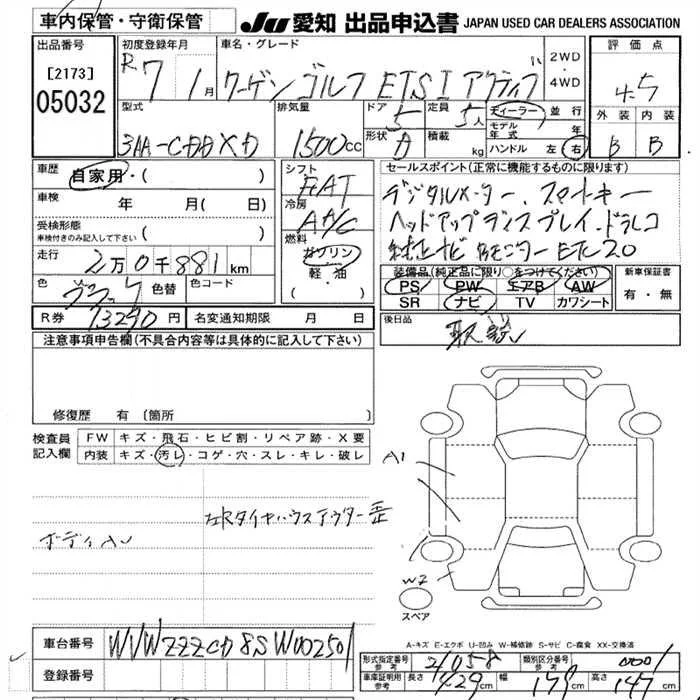 車内保管・守衛保管
JU 愛知 出品申込書 JAPAN USED CAR DEALERS ASSOCIATION
出品番号
[2173]
05032
初度登録年月
R7 1月
車名・グレード
ワーゲン ゴルフ ETSI アクティブ
2WD
4WD
評価点
4.5
外装 内装
B B
型式
3AA-CDDXD
排気量
1500cc
ドア
5
定員
5人
形状
積載
kg
ディーラー 並行
モデル年式 年
ハンドル 左 右
車歴
自家用・( )
車検 年 月( 日)
受検形態
車検付きのみ記入して下さい ( )
走行
2万0千881km
色
ブラック
色替
色コード
R券 13290円
名変通知期限 月 日
シフト
FAT
冷房
A/C
燃料
ガソリン
軽・油
・( )
セールスポイント(正常に機能するものに限ります)
デジタルメーター、スマートキー
ヘッドアップディスプレイ、ドラレコ
純正ナビ Bモニター ETC2.0
装備品(純正品に限り○をつけてください)
PS PW エアB AW
SR ナビ TV カワシート
新車保証書
有・無
後日品
取説
注意事項申告欄(不具合内容等は具体的に記入して下さい)
修復歴 有 〔箇所
検査員記入欄
FW キズ・飛石・ヒビ割・リペア跡・X要
内装 キズ・汚レ・コゲ・穴・スレ・キレ・破レ
ボディAU
左Rタイヤハウスアウター歪
A1
W2
スペア
A-キズ E-エクボ U-凹み W-補修跡 S-サビ C-腐食 XX-交換済
車台番号 WVWZZZCD8SW002501
登録番号
形式指定番号
参考 21058
類別区分番号
参考 0001
車庫証明用
参考 長さ 429cm 幅 179cm 高さ 147cm